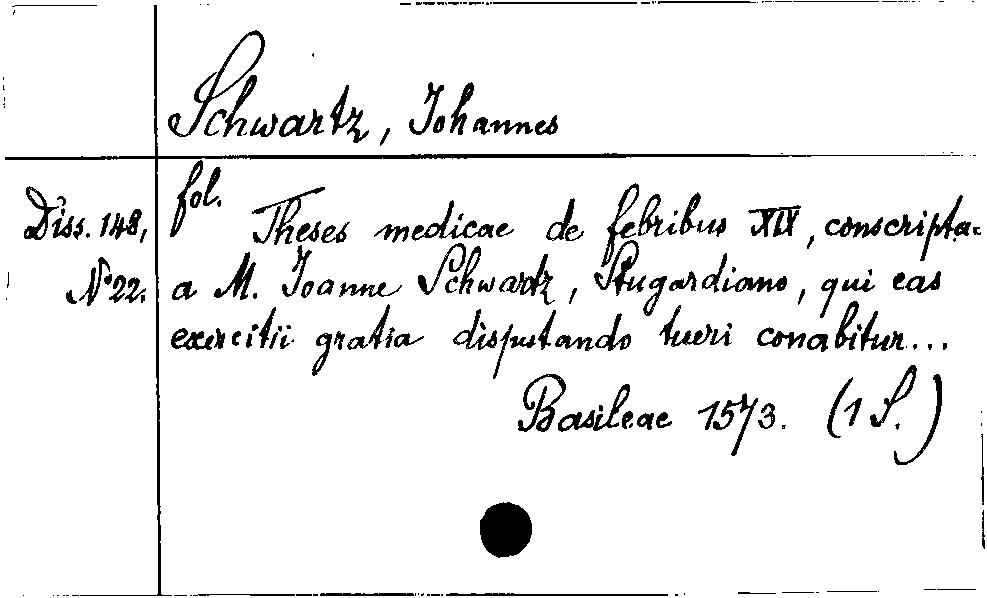 Schwartz, Johannes
Diss. 148,
N° 22.
fol.
Theses medicae de febribus XIX, conscripta-
a M. Joanne Schwartz, Stugardiano, qui eas
exercitii gratia disputando tueri conabitur...
Basileae 1573. (1 S.)